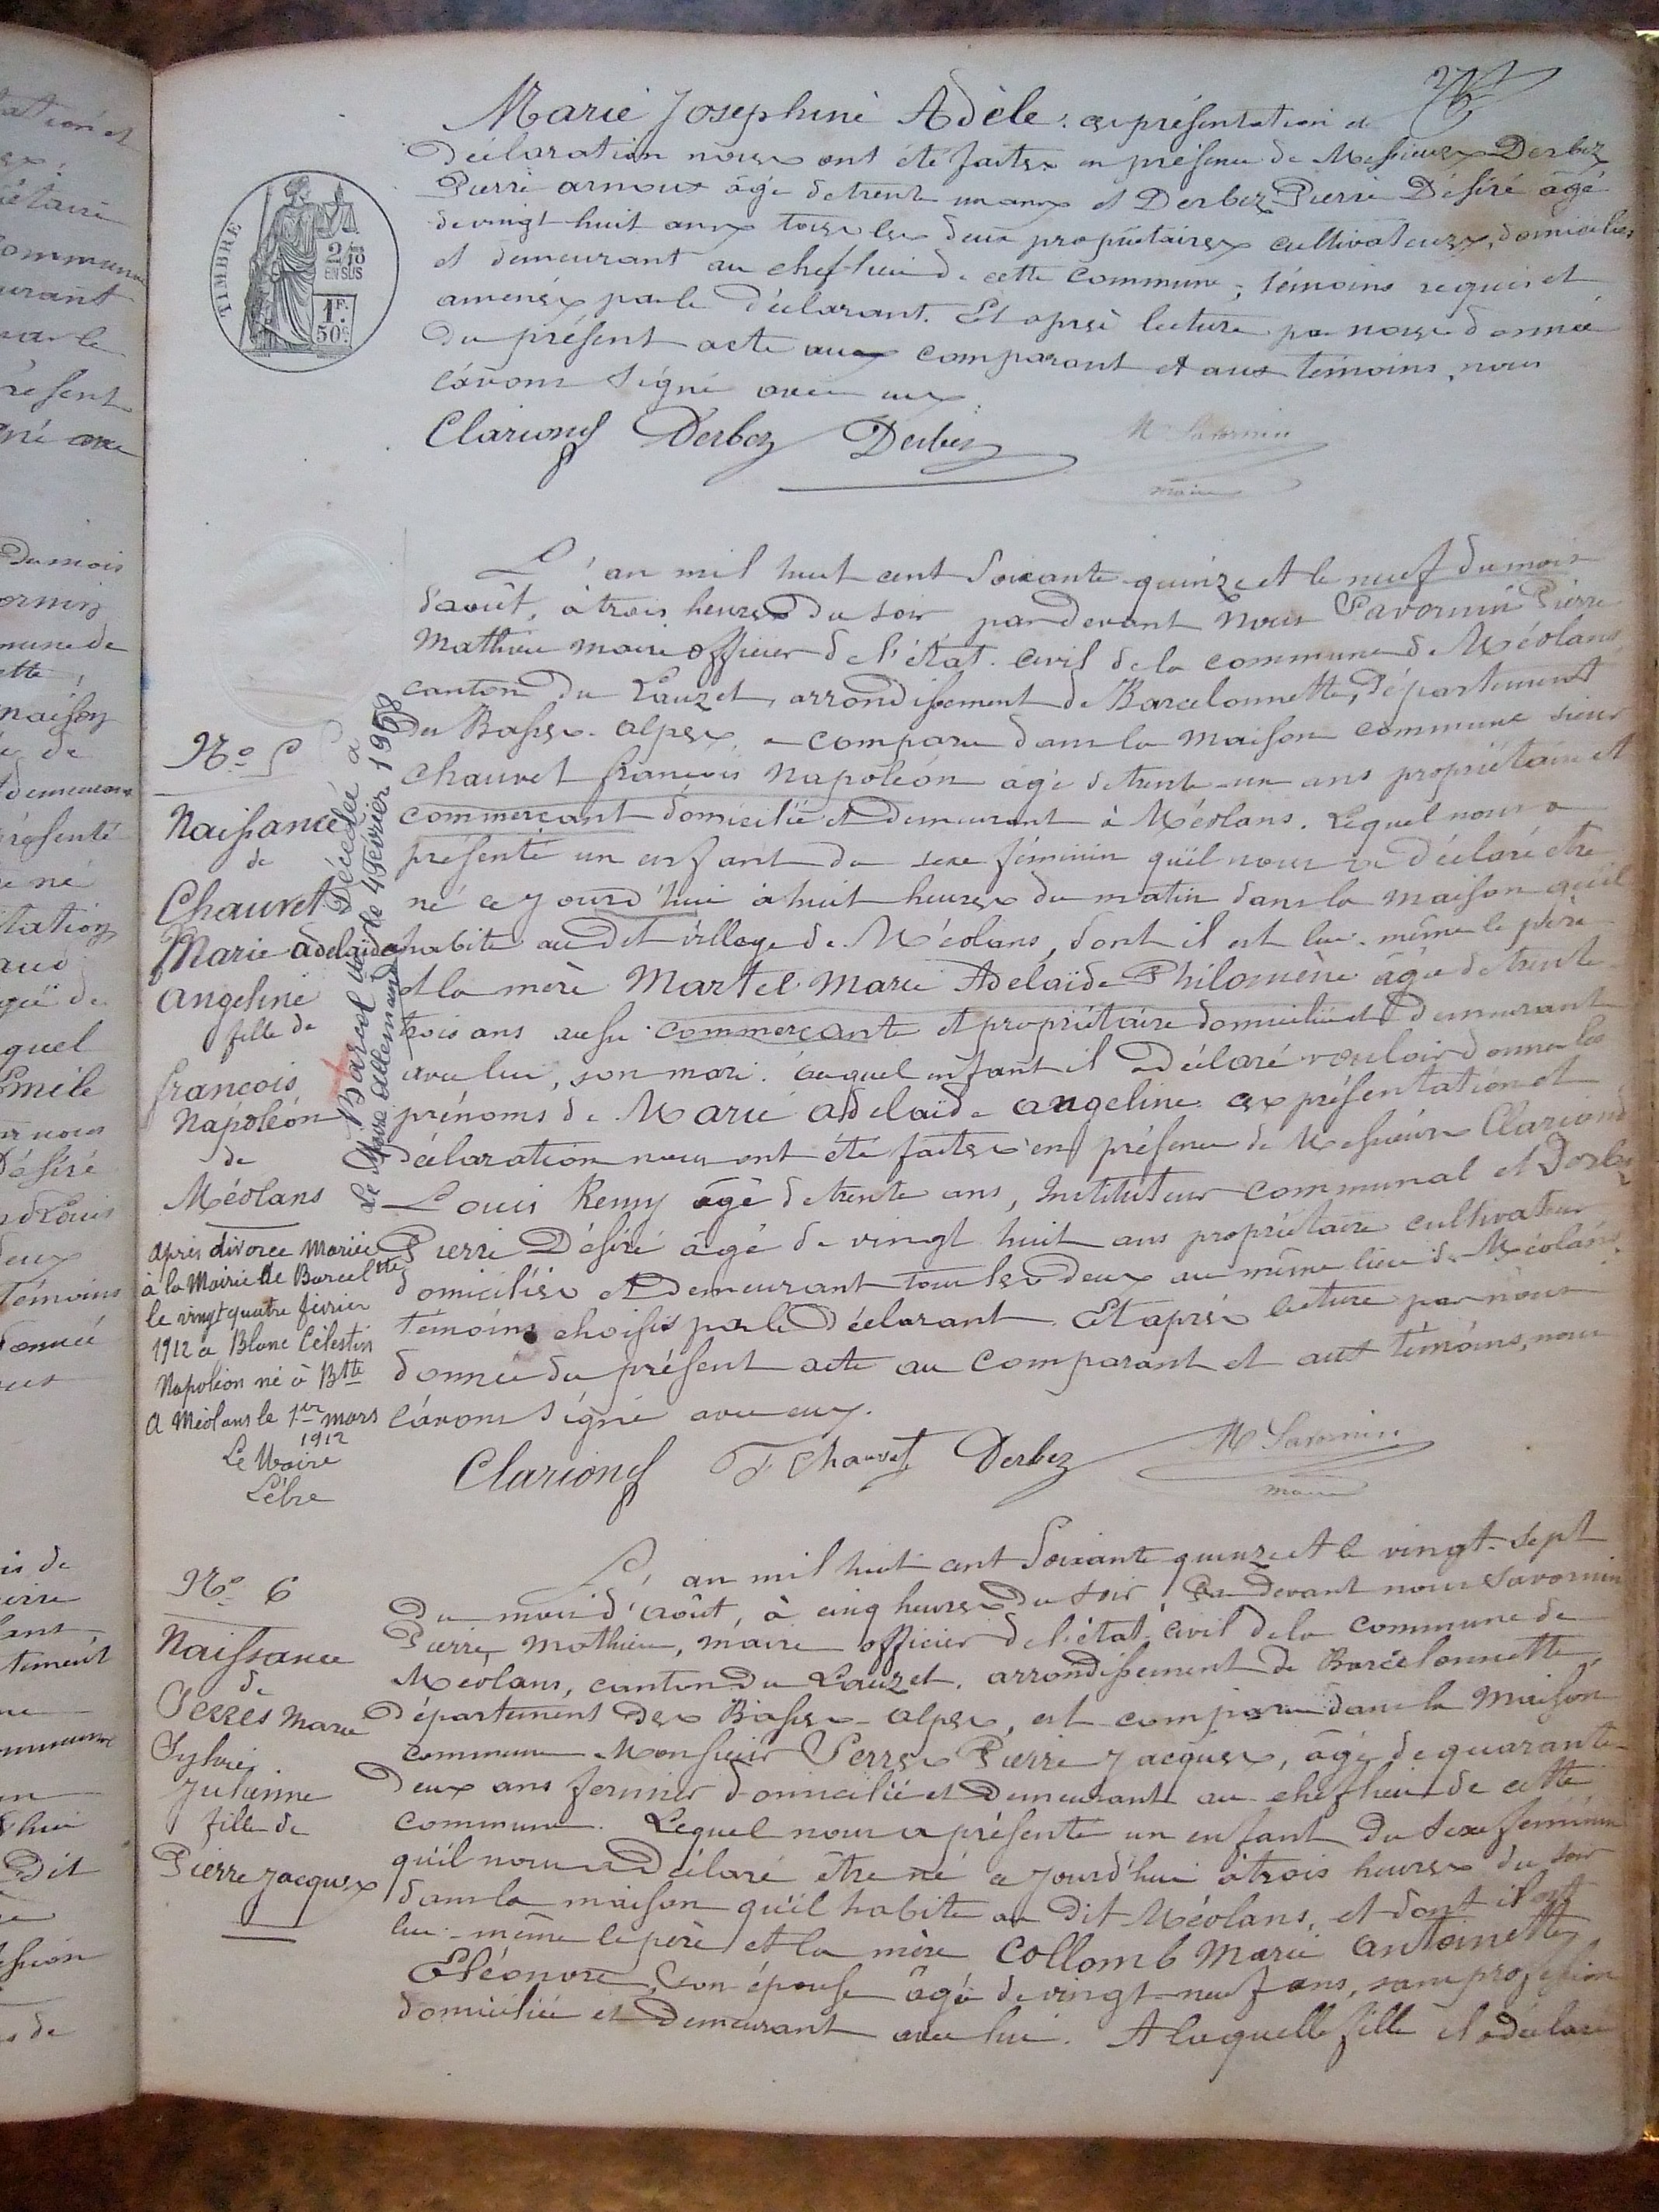 Marie Joséphine Adèle. ces présentation et
Déclaration nous ont été faites en présence de Messieurs Derbez
Pierre arnoux âgé de trente un ans et Derbez Pierre Désiré âgé
de vingt huit ans tous les deux propriétaires cultivateurs, domiciliés
et demeurant au chef-lieu de cette commune ; témoins requis et
amenés par le déclarant. Et après lecture par nous donnée
du présent acte aux comparant et aux témoins, nous
l'avons signé avec eux.
Clariond Derbez Derbez M Savornin
maire
TIMBRE
2/10
EN SUS
1F.
50c.
L'an mil huit cent soixante quinze et le neuf du mois
d'août, à trois heures du soir par devant nous Savornin Pierre
Mathieu maire officier de l'état-civil de la commune de Méolans
canton du Lauzet, arrondissement de Barcelonnette, département
des Basses-alpes, a comparu dans la maison commune sieur
Chauvet françois Napoléon âgé de trente-un ans propriétaire et
commerçant domicilié et demeurant à Méolans. Lequel nous a
présenté un enfant du sexe féminin qu'il nous a déclaré être
né ce jourd'hui à huit heures du matin dans la maison qu'il
habite au dit village de Méolans, dont il est lui-même le père
et la mère Martel Marie Adelaïde Philomène âgée de trente
trois ans aussi commerçante et propriétaire domiciliée et demeurant
avec lui, son mari. auquel enfant il a déclaré vouloir donner les
prénoms de Marie adelaïde angeline ces présentation et
déclaration nous ont été faites en présence de Messieurs Clariond
Louis Remy âgé de trente ans, Instituteur communal et Derbez
Pierre Désiré âgé de vingt huit ans propriétaire cultivateur
domiciliés et demeurant tous les deux au même lieu de Méolans.
témoins choisis par le déclarant. Et après lecture par nous
donnée du présent acte au comparant et aux témoins, nous
l'avons signé avec eux.
Clariond F Chauvet Derbez M Savornin
maire
No 5
Naissance
de
Chauvet
Marie adelaïde
angeline
fille de
françois
Napoléon
de
Méolans
Décédée a
Barcel le 4 Fevrier 1958
Le Maire
après divorce Mariée
à la Mairie de Barcel tte
le vingt quatre février
1912 a Blanc Célestin
Napoléon né à Btte
A Méolans le 1er mars
1912
Le Maire
Lèbre
No 6
Naissance
de
Serres Marie
Sylvie
Julienne
fille de
Pierre Jacques
L'an mil huit cent soixante quinze et le vingt-sept
du mois d'août, à cinq heures du soir, Par Devant nous Savornin
Pierre, Mathieu, maire officier de l'état-civil de la commune de
Méolans, canton du Lauzet, arrondissement de Barcelonnette,
département des Basses-alpes, est comparu dans la Maison
commune Monsieur Serres Pierre Jacques, âgé de quarante-
deux ans fermier domicilié et demeurant au chef lieu de cette
commune. Lequel nous a présenté un enfant du sexe féminin
qu'il nous a déclaré être né ce jourd'hui à trois heures du soir
dans la maison qu'il habite au dit Méolans, et dont il est
lui-même le père et la mère Collomb Marie Antoinette,
Eléonore, son épouse âgée de vingt-neuf ans, sans profession
domiciliée et demeurant avec lui. A laquelle fille il a déclaré